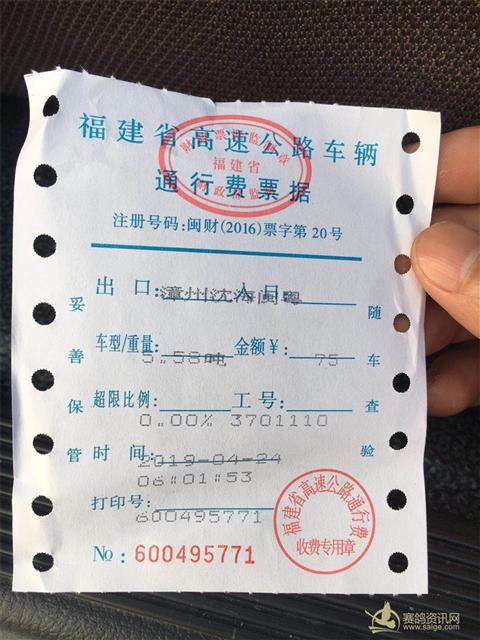 福建省高速公路车辆
通行费票据
福建省
注册号码:闽财(2016)票字第20号
出口: 入口:
漳州沈海闽粤
车型/重量: 金额¥:
5.58吨 75
超限比例: 工号:
0.00% 3701110
时间:
2019-04-24
06:01:53
打印号:
600495771
No:600495771
妥善保管
随车查验
福建省高速公路通行费
收费专用章
赛鸽资讯网
www.saige.com